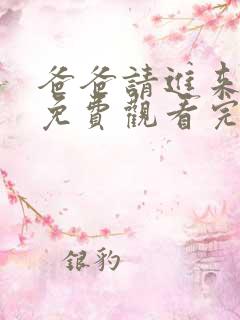 爸爸請進來
免費觀看完
銀豹